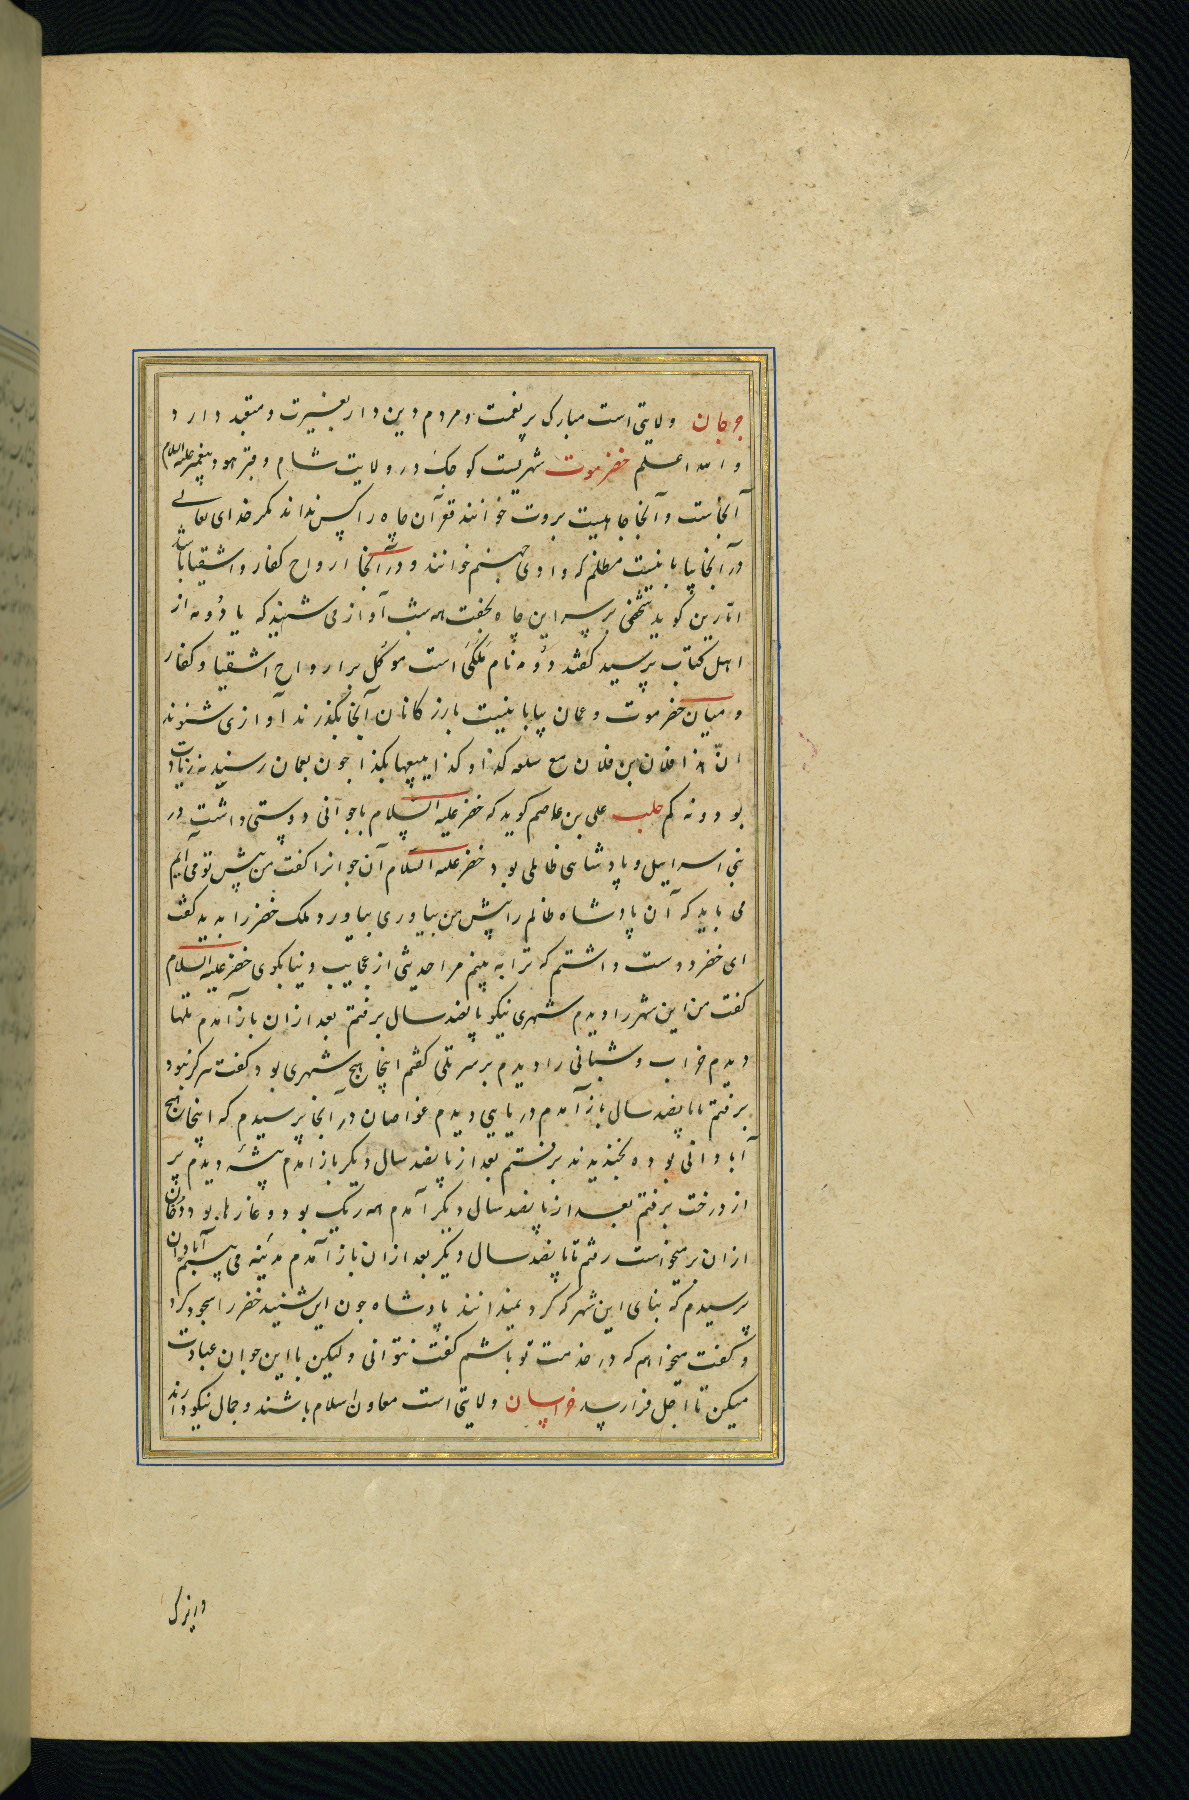 جرجان ولایتی است مبارک پر نعمت و مردم دین دار بغیرت و متعبد دارد
والله اعلم حضرموت شهریست کوچک در ولایت شام و قبر هود پیغمبر علیه السلام
آنجاست و آنجا چاهیست بروت خوانند قعر آن چاه را کس نداند مگر خدای تعالی
در آنجا بیابانیست مظلم که وادی جهنم خوانند و در آنجا ارواح کفار و اشقیا باشد
گوید شخصی بر سر این چاه بخفت همه شب آواز می شنید که یا دومه از
اهل کتاب پرسید گفتند دومه نام ملکی است موکل بر ارواح اشقیا و کفار
و میان حضرموت و عمان بیابانیست بازرکانان آنجا بگذرند آوازی شنوند
انّ هذا فلان بن فلان مع سلعه کذا و کذا یبیعها بکذا جون بعمان رسند نه زیادت
بود و نه کم حلب علی بن عاصم کوید که خضر علیه السلام با جوانی دوستی داشت در
بنی اسراییل و پادشاهی ظالمی بود خضر علیه السلام آن جوانرا کفت من پیش تو می آیم
می باید که آن پادشاه ظالم را پیش من بیاوری بیاورد ملک خضر را بدید کفت
ای خضر دوست داشتم که ترا به بینم مرا حدیثی از عجایب دنیا بکوی خضر علیه السلام
کفت من این شهر را دیدم شهری نیکو پانصد سال برفتم بعد ازان بازآمدم تلها
دیدم خراب و شبانی را دیدم بر سر تلی کفتم اینجا هیچ شهری بود کفت هرکز نبود
برفتم تا پانصد سال بازآمدم دریایی دیدم غواصان در آنجا پرسیدم که اینجا هیچ
آبادانی بوده بخندیدند برفتم بعد از پانصد سال دیکر بازآمدم بیشهٔ دیدم پر
از درخت برفتم بعد از پانصد سال دیکر آمدم همه ریک بود و غارها بود و دخان
ازان برمیخواست رفتم تا پانصد سال دیکر بعد ازان بازآمدم مدینه می بینم آبادان
پرسیدم که بنای این شهر که کرد نمیدانند پادشاه جون این شنید خضر را سجود کرد
و کفت میخواهم که در خدمت تو باشم کفت نتوانی ولیکن با این جوان عبادت
میکن تا اجل فرا رسد خراسان ولایتی است معاون اسلام باشند و جمال نیکو دارند